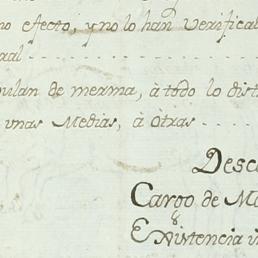 no efecto, y no lo han verifica
ral
ulan de merma, à todo lo dist
unas Medias, à Otras
Desc
Cargo de M
Existencia